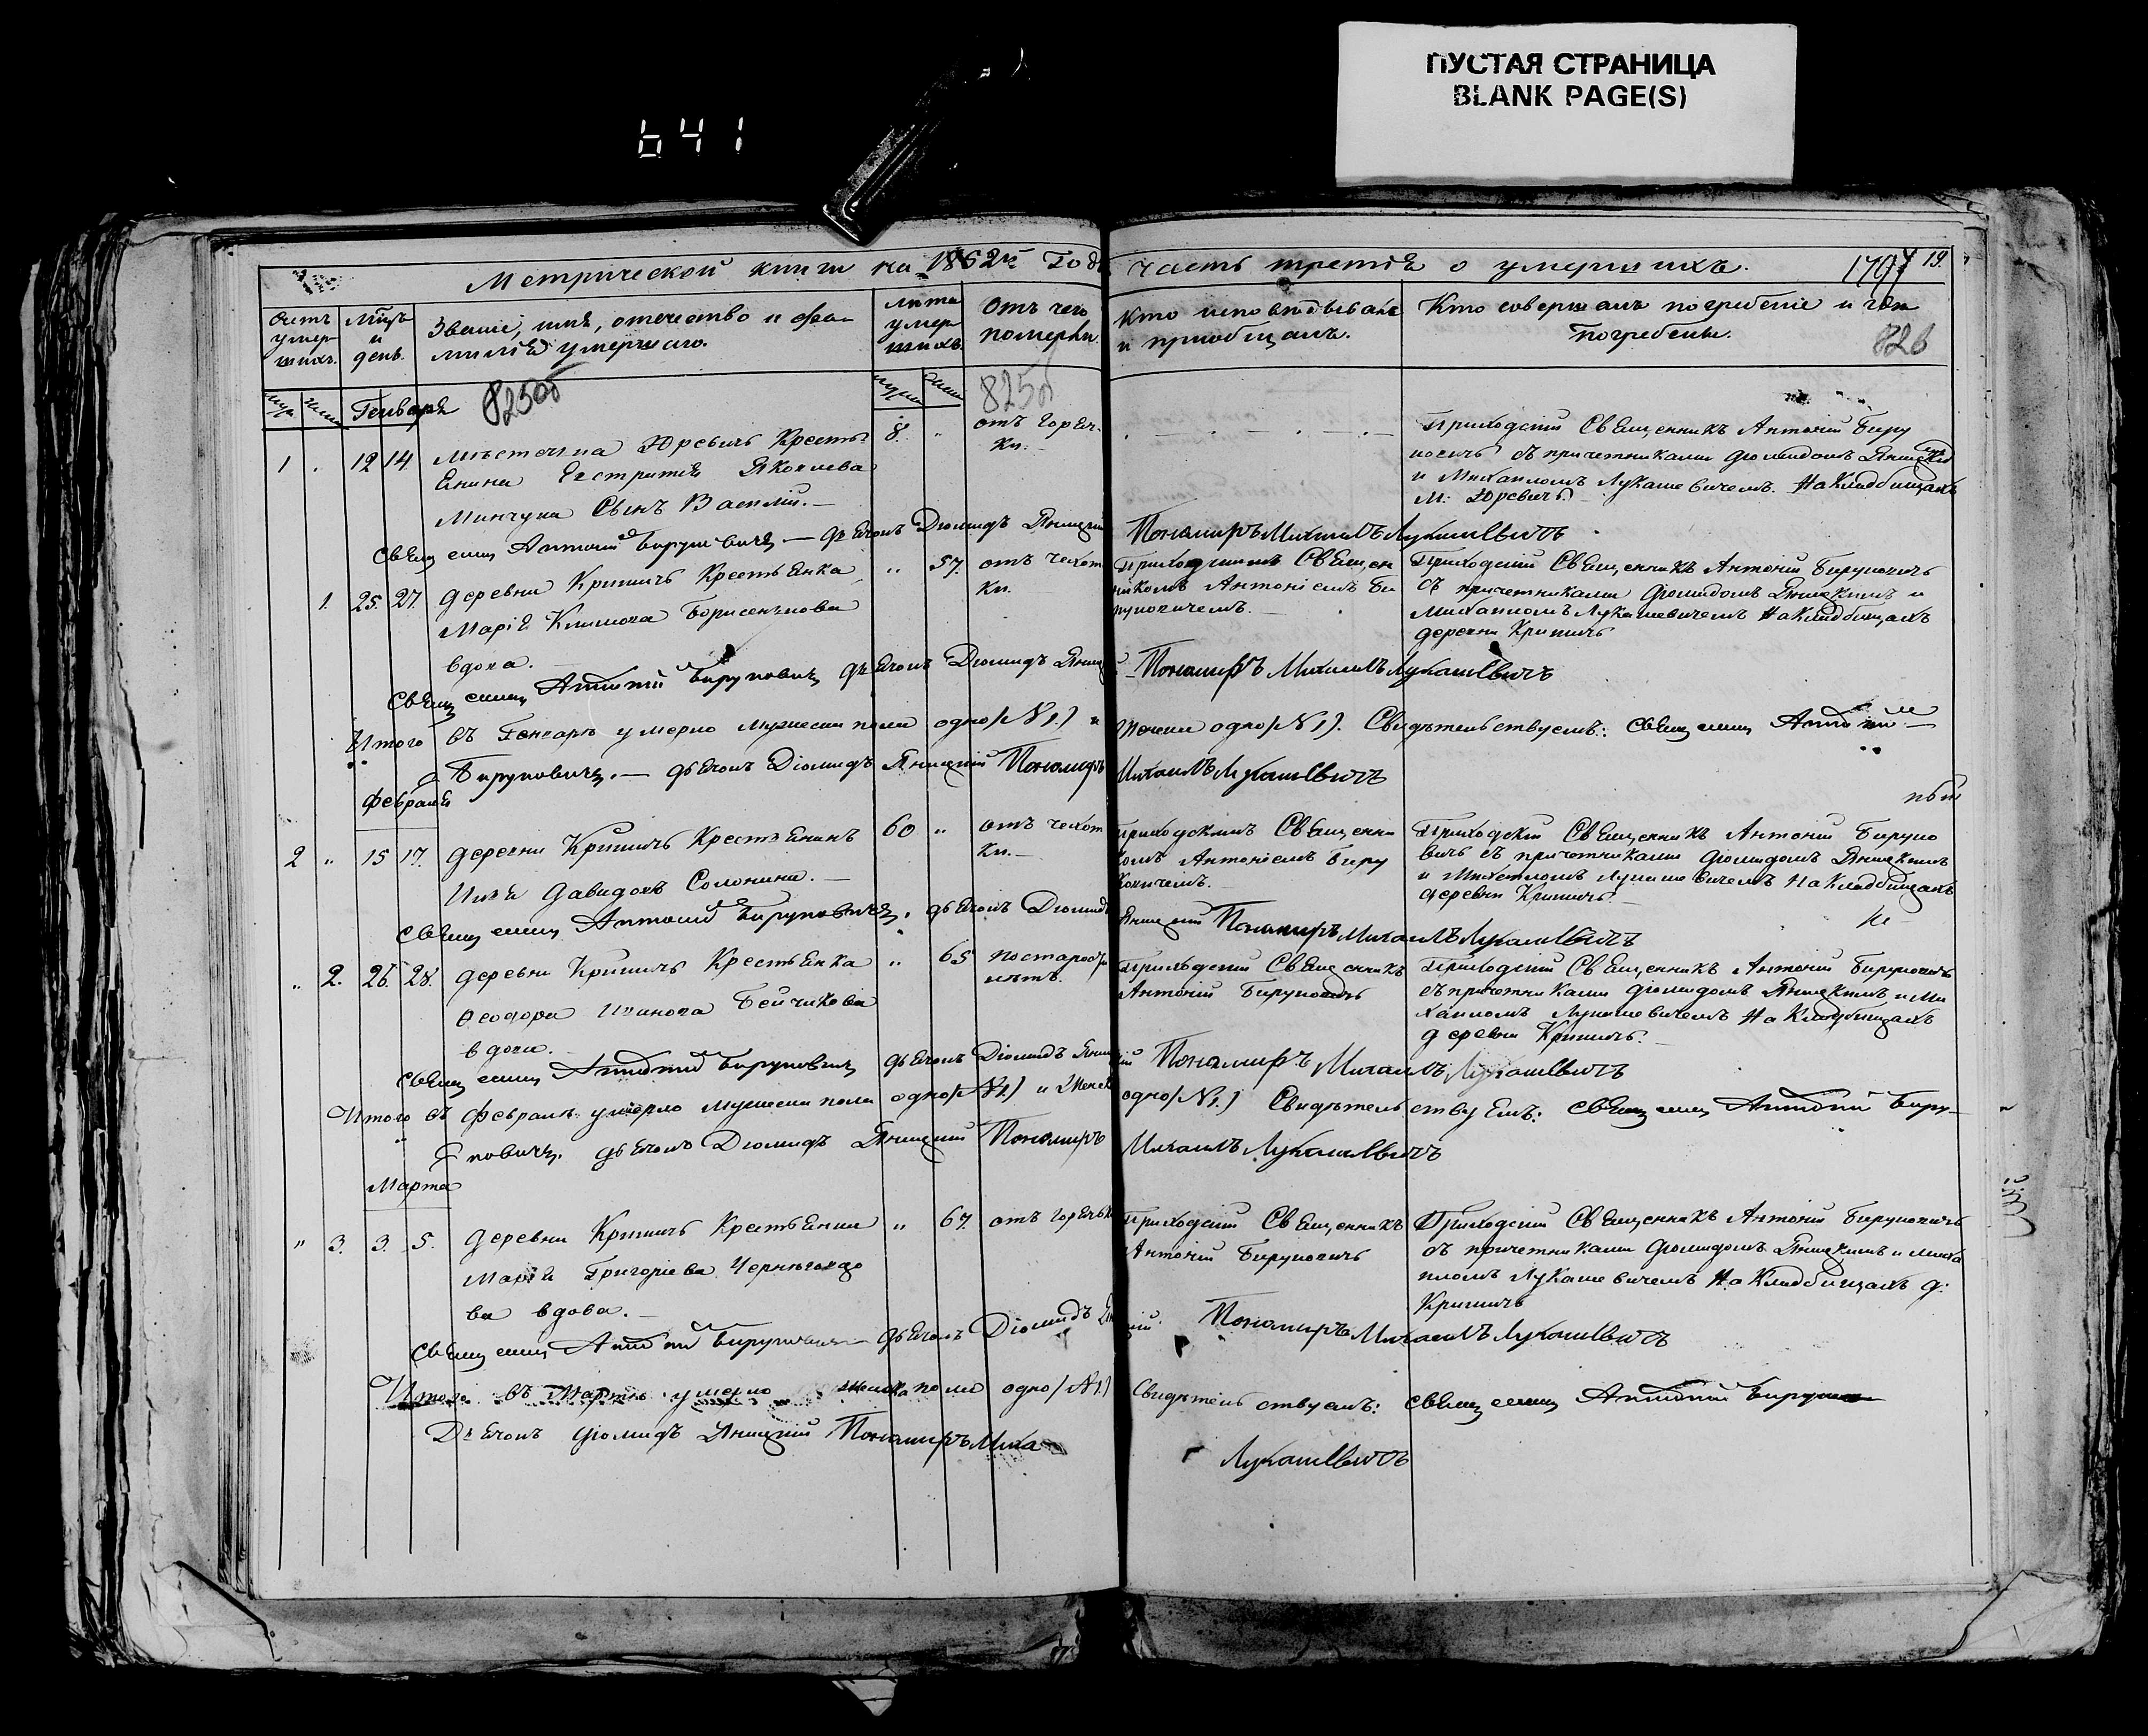 ПУСТАЯ СТРАНИЦА
BLANK PAGE(S)
641
Метрической книги на 1862й Годъ часть третія о умершихъ.
1707 19.
Счетъ умершихъ.
Мѣсяцъ и день.
Званіе, имя, отечество и фамилія умершаго.
Лѣта умершихъ
Отъ чего померли.
Кто исповѣдывалъ и пріобщалъ.
Кто совершалъ погребеніе и гдѣ погребены.
826
825об
825об
Генваря
1 . 12 14
Мѣстечка Юревичъ Кресть
янина Евстратія Яковлева
Минчука Сынъ Василій.—
8. "
отъ горяч-
ки.
Приходскій Священникъ Антоній Биру
новичъ съ причетниками Діомидомъ Яницкимъ
и Михаиломъ Лукашевичемъ. На Кладбищахъ
М: Юревичъ
Свящ Антоній Бируновичъ — Дьячокъ Діомидъ Яницкій Пономаръ Михаилъ Лукашевичъ
1. 25. 27.
деревни Кришичъ Крестьянка
Марія Климова Борисенкова
вдова.
" 57.
отъ чехот
ки.
Приходскимъ Священ
никомъ Антоніемъ Би
руновичемъ.
Приходскій Священникъ Антоній Бируновичъ
съ причетниками Діомидомъ Яницкимъ и
Михаиломъ Лукашевичемъ На Кладбищахъ
деревни Кришичъ
Свящ Антоній Бируновичъ Дьячокъ Діомидъ Яницкій Пономаръ Михаилъ Лукашевичъ
Итого въ Генварѣ умерло мужеска пола одно (№ 1.) и женска одно (№ 1). Свидѣтельствуемъ: Свящ Антоній
Бируновичъ.— Дьячокъ Діомидъ Яницкій Пономаръ Михаилъ Лукашевичъ
Февраля
2 " 15 17.
деревни Кришичъ Крестьянинъ
Илья Давидовъ Солонина.—
60 "
отъ чехот
ки.—
Приходскимъ Священни
комъ Антоніемъ Биру
новичемъ.
Приходскій Священникъ Антоній Бируно
вичъ съ причетниками Діомидомъ Яницкимъ
и Михаиломъ Лукашевичемъ На Кладбищахъ
деревни Кришичъ.
Свящ Антоній Бируновичъ. Дьячокъ Діомидъ Яницкій Пономаръ Михаилъ Лукашевичъ
" 2. 26. 28.
деревни Кришичъ Крестьянка
Ѳеодора Иванова Бейчикова
вдова.
" 65
по старости
лѣтъ.
Приходскій Священникъ
Антоній Бируновичъ
Приходскій Священникъ Антоній Бируновичъ
съ причетниками Діомидомъ Яницкимъ и Ми
хаиломъ Лукашевичемъ На Кладбищахъ
деревни Кришичъ.
Свящ Антоній Бируновичъ Дьячокъ Діомидъ Яницкій Пономаръ Михаилъ Лукашевичъ
Итого въ Февралѣ умерло мужеска пола одно (№ 1.) и женска одно (№ 1.) Свидѣтельствуемъ: Свящ Антоній Биру-
новичъ. Дьячокъ Діомидъ Яницкій Пономаръ Михаилъ Лукашевичъ
Марта
" 3. 3. 5.
деревни Кришичъ Крестьянка
Марія Григорьева
ва вдова.—
" 67.
отъ горячки
Приходскій Священникъ
Антоній Бируновичъ
Приходскій Священникъ Антоній Бируновичъ
съ причетниками Діомидомъ Яницкимъ и Миха
иломъ Лукашевичемъ На Кладбищахъ д:
Кришичъ
Свящ Антоній Бируновичъ Дьячокъ Діомидъ Яницкій Пономаръ Михаилъ Лукашевичъ
Итого въ Мартѣ умерло женска пола одно (№ 1.) Свидѣтельствуемъ: Свящ Антоній Бируновичъ
Дьячокъ Діомидъ Яницкій Пономаръ Миха Лукашевичъ